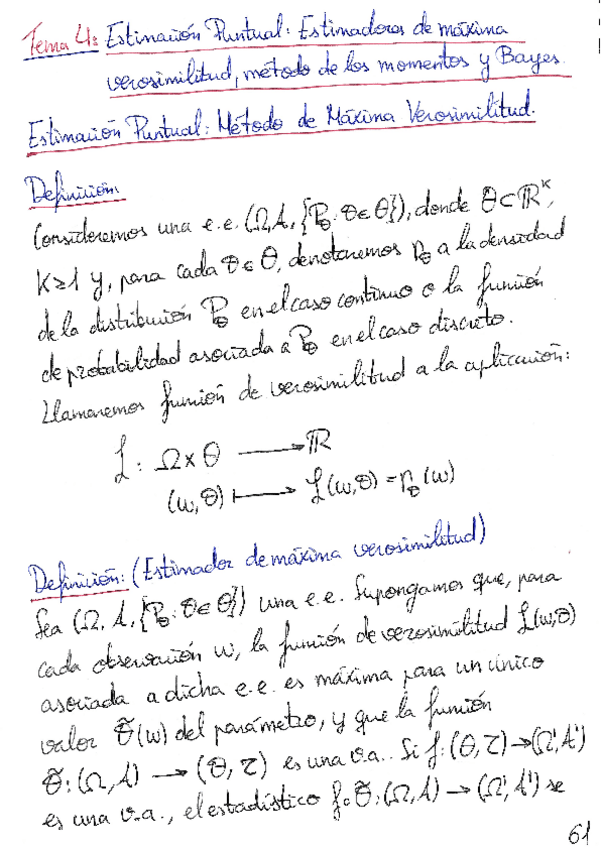 Tema 4: Estimación Puntual: Estimadores de máxima
verosimilitud, método de los momentos y Bayes.
Estimación Puntual: Método de Máxima Verosimilitud.
Definición:
Consideremos una e.e. (Ω, A, {P_θ: θ ∈ Θ}), donde Θ ⊂ ℝ^k,
K≥1 y, para cada θ ∈ Θ, denotaremos p_θ a la densidad
de la distribución P_θ en el caso continuo o la función
de probabilidad asociada a P_θ en el caso discreto.
Llamaremos función de verosimilitud a la aplicación:
ℒ: Ω × Θ → ℝ
(w, θ) ↦ ℒ(w, θ) = p_θ(w)
Definición: (Estimador de máxima verosimilitud)
Sea (Ω, A, {P_θ: θ ∈ Θ}) una e.e. Supongamos que, para
cada observación w, la función de verosimilitud ℒ(w, θ)
asociada a dicha e.e. es máxima para un único
valor θ̃(w) del parámetro, y que la función
θ̃: (Ω, A) → (Θ, τ) es una v.a.. Si f: (Θ, τ) → (Ω', A')
es una v.a., el estadístico f∘θ̃: (Ω, A) → (Ω', A') se
61